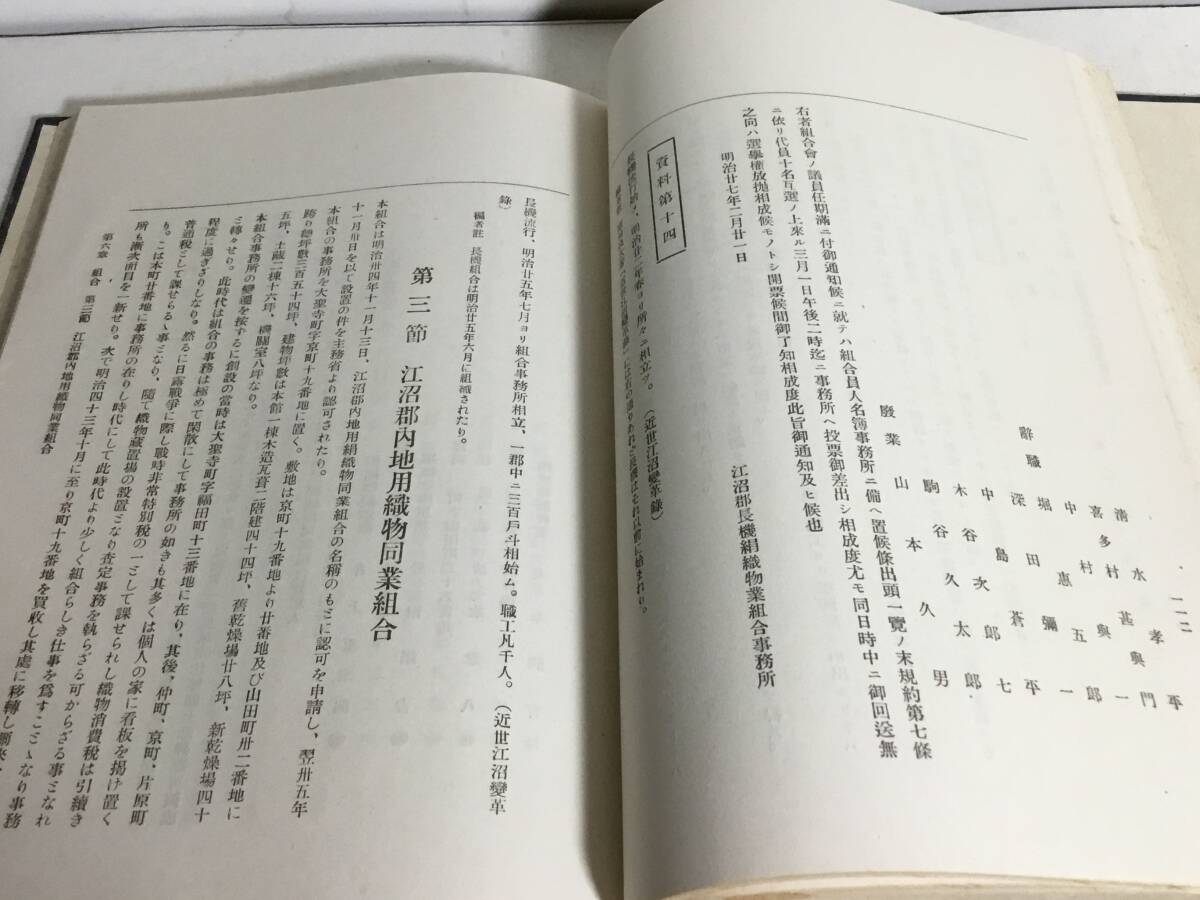 一一二
清水孝平
喜多村甚與門
中村與一
堀惠五郎
辭職 深田彌一
中島蒼平
木谷次郎七
駒谷久太郎
廢業 山本久男
右者組合會ノ議員任期滿ニ付御通知候ニ就テハ組合員人名簿事務所ニ備ヘ置候條出頭一覽ノ末規約第七條
ニ依リ代員十名互選ノ上來ル三月一日午後二時迄ニ事務所ヘ投票御差出シ相成度尤モ同日時中ニ御回送無
之向ハ選擧權放抛相成候モノトシ開票候間御了知相成度此旨御通知及ヒ候也
明治廿七年二月廿一日
江沼郡長機絹織物業組合事務所
資料第十四
長機流行始メ、明治廿二年春ヨリ所々ニ相立ツ。(近世江沼變革錄)
には右の通りあれど長機はそれ以前に始まれり。
長機流行、明治廿五年七月ヨリ組合事務所相立、一郡中ニ三百戶斗相始ム。職工凡千人。(近世江沼變革
錄)
編者註 長機組合は明治廿五年六月に組織されたり。
第三節 江沼郡內地用織物同業組合
本組合は明治卅四年十一月十三日、江沼郡內地用絹織物同業組合の名稱のもとに認可を申請し、翌卅五年
十一月卅日を以て設置の件を主務省より認可されたり。
本組合の事務所を大聖寺町字京町十九番地に置く。敷地は京町十九番地より廿番地及び山田町卅二番地に
跨り總坪數三百五十四坪、建物坪數は本館一棟木造瓦葺二階建四十四坪、舊乾燥場廿八坪、新乾燥場四十
五坪、土藏二棟十六坪、機關室八坪なり。
本組合事務所の變遷を按ずるに創設の當時は大聖寺町字福田町十三番地に在り、其後、仲町、京町、片原町
と轉々せり。此時代は組合の事務は極めて閑散にして事務所の如きも其多くは個人の家に看板を揭げ置く
程度に過ぎざりしなり。然るに日露戰爭に際し戰時非常特別稅の一として課せられし織物消費稅は引續き
普通稅として課せらるゝ事となり、隨て織物藏置場の設置となり査定事務を執らざる可からざる事となれ
り。こは本町廿番地に事務所の在りし時代にして此時代より少しく組合らしき仕事を爲すことゝなり事務
所も漸次面目を一新せり。次で明治四十三年十月に至り京町十九番地を買收し其處に移轉し
第六章 組合 第三節 江沼郡內地用織物同業組合